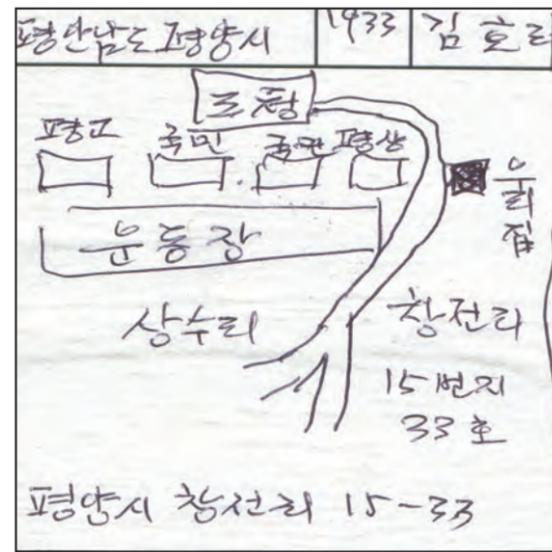 평안남도 평양시 1933 김호
도청
평고 국민 국민 평상
우리집
운동장
상수리 창전리
15번지
33호
평양시 창전리 15-33